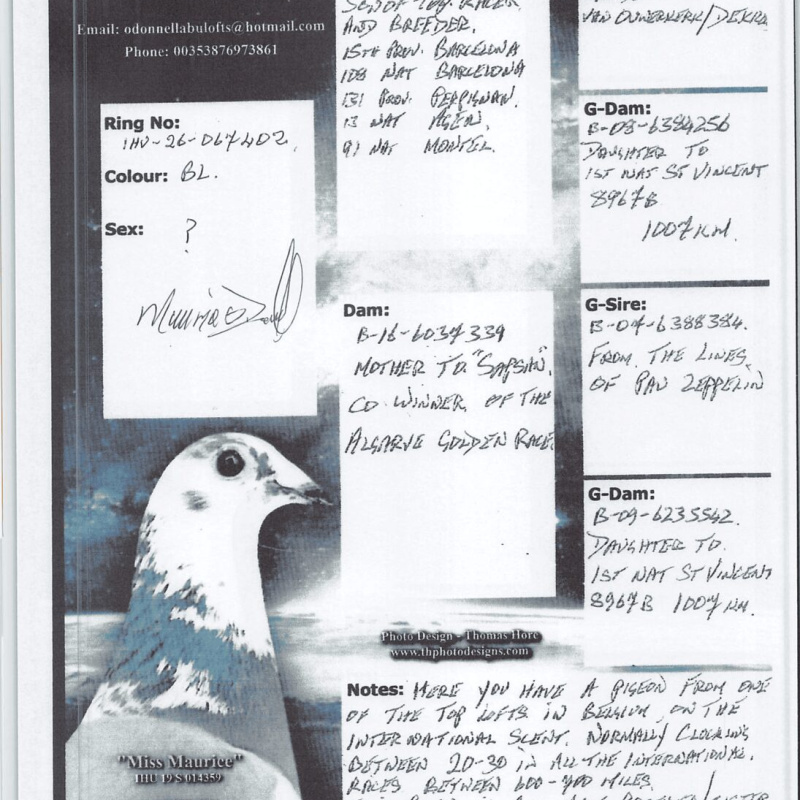 Email: odonnellabulofts@hotmail.com
Phone: 00353876973861
Ring No:
IHU-26-067402.
Colour: BL.
Sex: ?
"Miss Maurice"
IHU 19 S 014359
SON OF TOP RACER
AND BREEDER.
15TH PROV. BARCELONA
108 NAT BARCELONA
131 PROV. PERPIGNAN.
13 NAT AGEN.
91 NAT MONTEL.
Dam:
B-16-6037339
MOTHER TO "SAPSAN".
CO WINNER OF THE
ALGARVE GOLDEN RACE
Photo Design - Thomas Hore
www.thphotodesigns.com
VAN OUWERKERK/DEKRA
G-Dam:
B-08-6384256
DAUGHTER TO
1ST NAT ST VINCENT
8967B
1007KM.
G-Sire:
B-07-6388384.
FROM THE LINES
OF PAU ZEPPELIN
G-Dam:
B-09-6235542.
DAUGHTER TO.
1ST NAT ST VINCENT
8967B 1007KM.
Notes: HERE YOU HAVE A PIGEON FROM ONE
OF THE TOP LOFTS IN BELGIUM, ON THE
INTERNATIONAL SCENT. NORMALLY CLOCKING
BETWEEN 20-30 IN ALL THE INTERNATIONAL.
RACES BETWEEN 600-900 MILES.